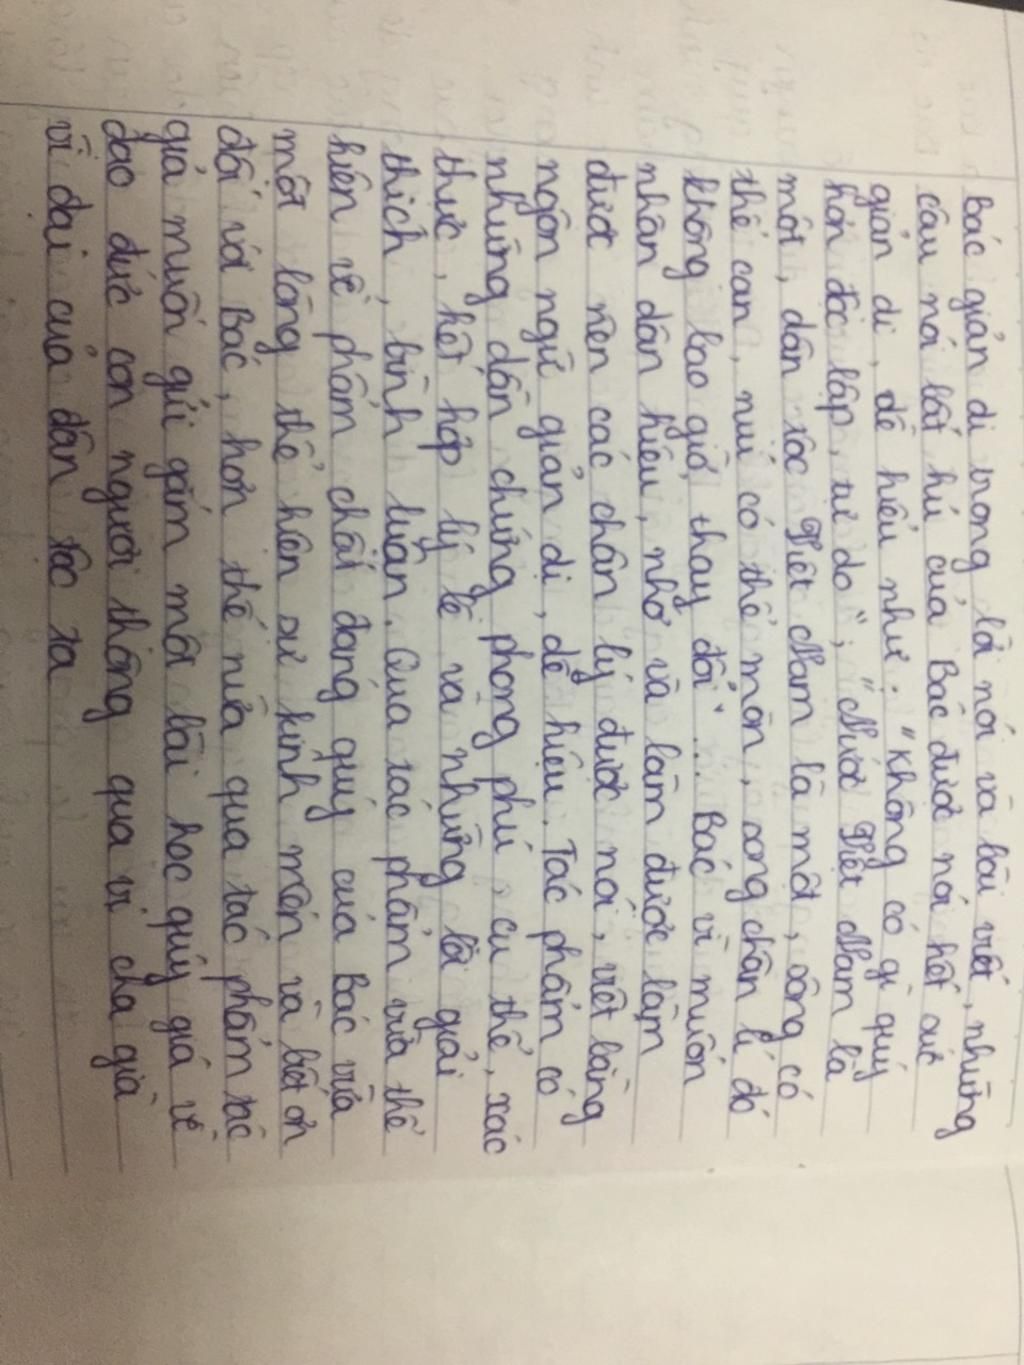 Bác giản dị trong lời nói và bài viết, những
câu nói bất hủ của Bác được nói hết sức
giản dị, dễ hiểu như: "Không có gì quý
hơn độc lập, tự do", "Nước Việt Nam là
một, dân tộc Việt Nam là một, sông có
thể cạn, núi có thể mòn, song chân lí đó
không bao giờ thay đổi"... Bác vì muốn
nhân dân hiểu, nhớ và làm được làm
được nên các chân lý được nói, viết bằng
ngôn ngữ giản dị, dễ hiểu. Tác phẩm có
những dẫn chứng phong phú, cụ thể, xác
thực, kết hợp lý lẽ và những lời giải
thích, bình luận. Qua tác phẩm vừa thể
hiện vẻ phẩm chất đáng quý của Bác vừa
một lòng thể hiện sự kính mến và biết ơn
đối với Bác, hơn thế nữa qua tác phẩm tác
giả muốn gửi gắm một bài học quý giá về
đạo đức con người thông qua vị cha già
vĩ đại của dân tộc ta